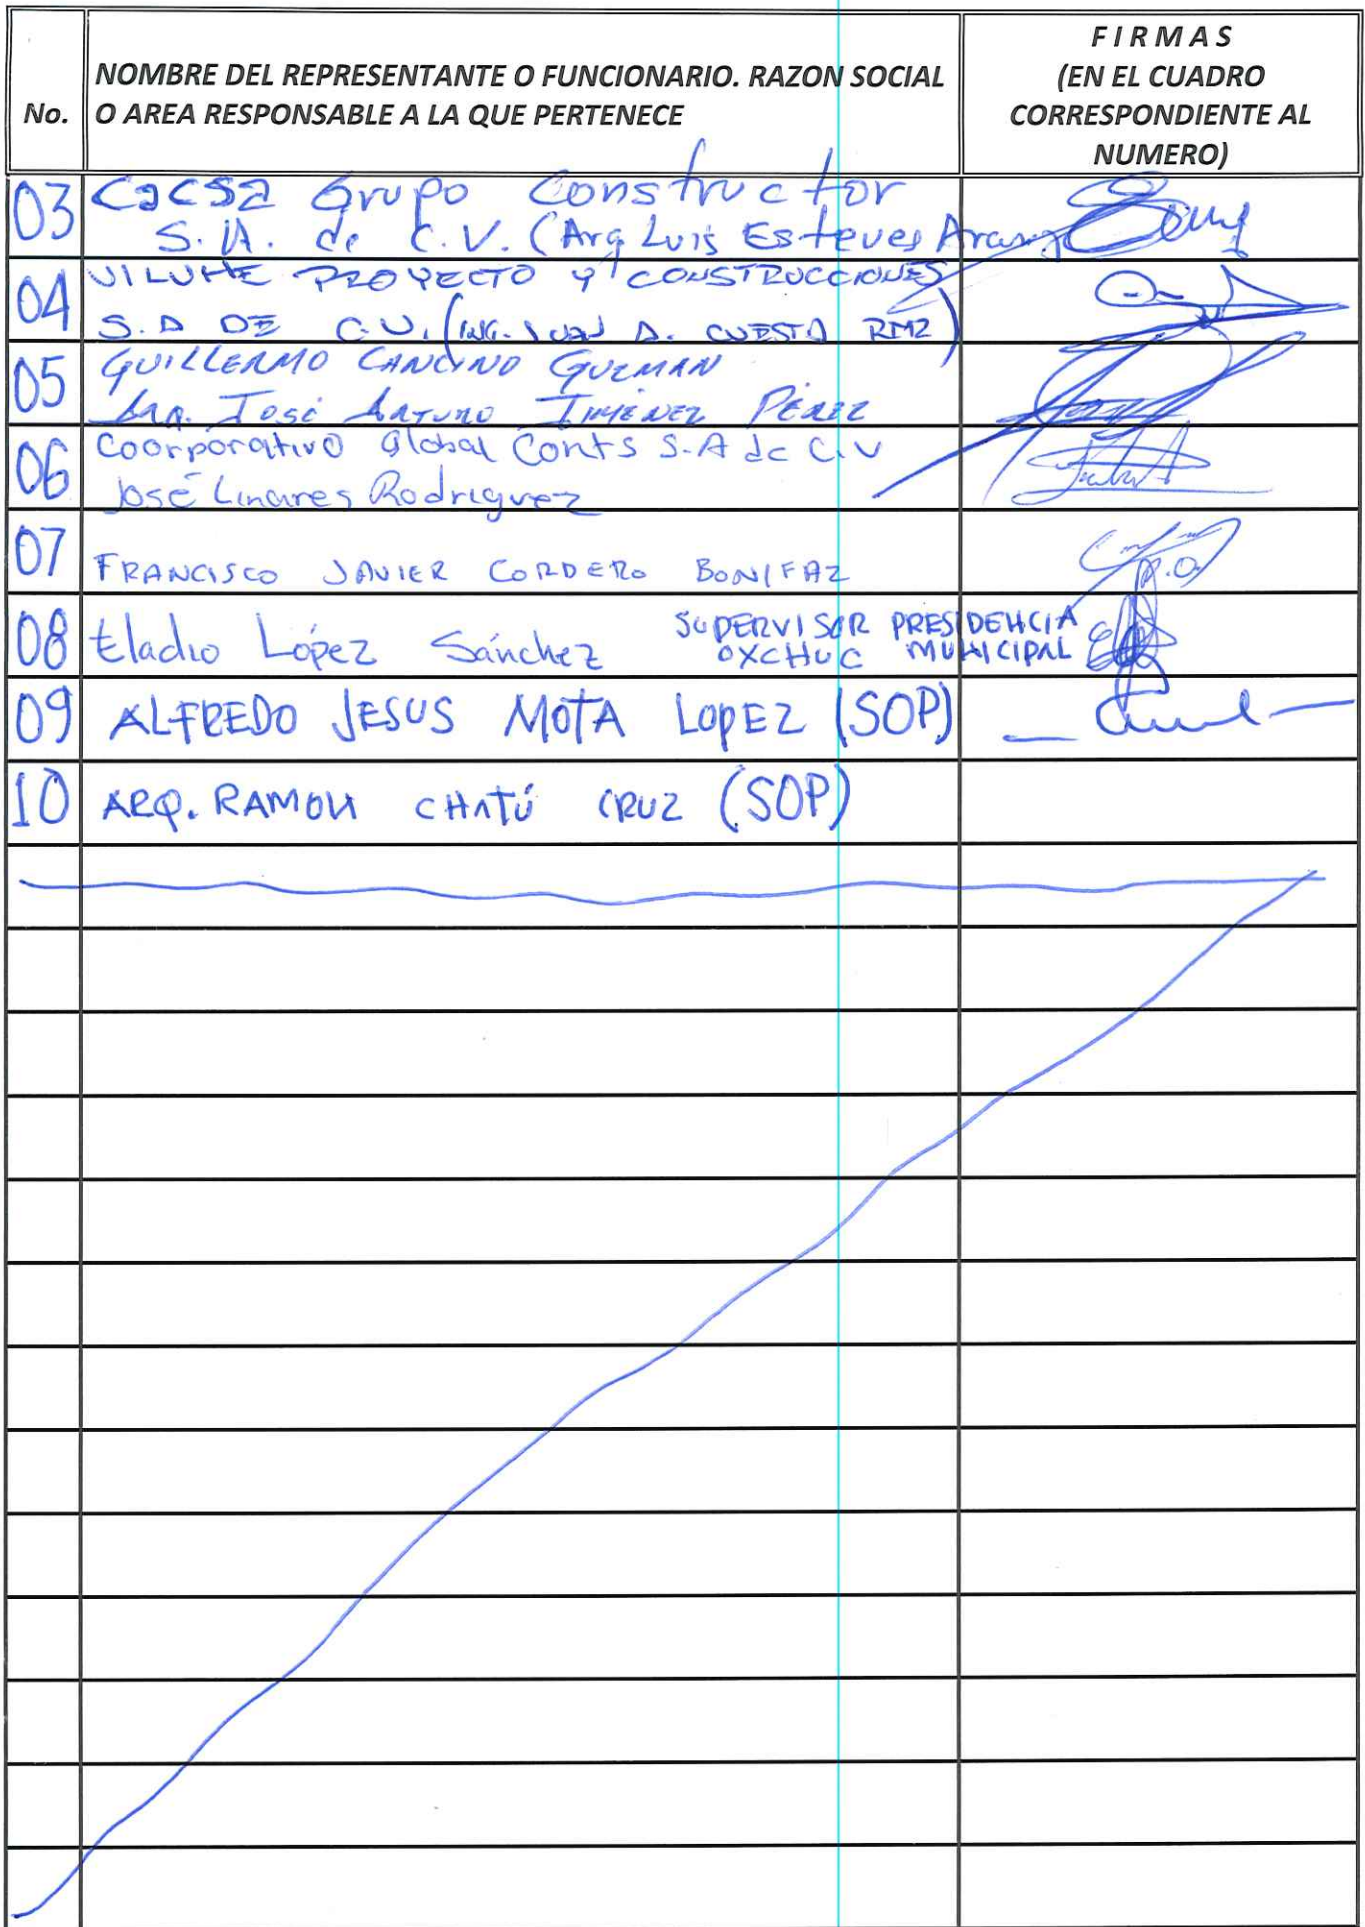 No.
NOMBRE DEL REPRESENTANTE O FUNCIONARIO. RAZON SOCIAL
O AREA RESPONSABLE A LA QUE PERTENECE
FIRMAS
(EN EL CUADRO
CORRESPONDIENTE AL
NUMERO)
03 Cacsa Grupo Constructor
S.A. de C.V. (Arq Luis Esteves
04 VILUHE PROYECTO Y CONSTRUCCIONES
S.A DE C.V. (ING. JUAN A. CUESTA RMZ)
05 GUILLERMO CANCINO GUZMAN
Arq. José Arturo JIMÉNEZ PÉREZ
06 Coorporativo Global Conts S.A de C.V
José Linares Rodriguez
07 FRANCISCO JAVIER CORDERO BONIFAZ
08 Eladio López Sánchez SUPERVISOR PRESIDENCIA
OXCHUC MUNICIPAL
09 ALFREDO JESUS MOTA LOPEZ (SOP)
10 ARQ. RAMON CHATÚ CRUZ (SOP)